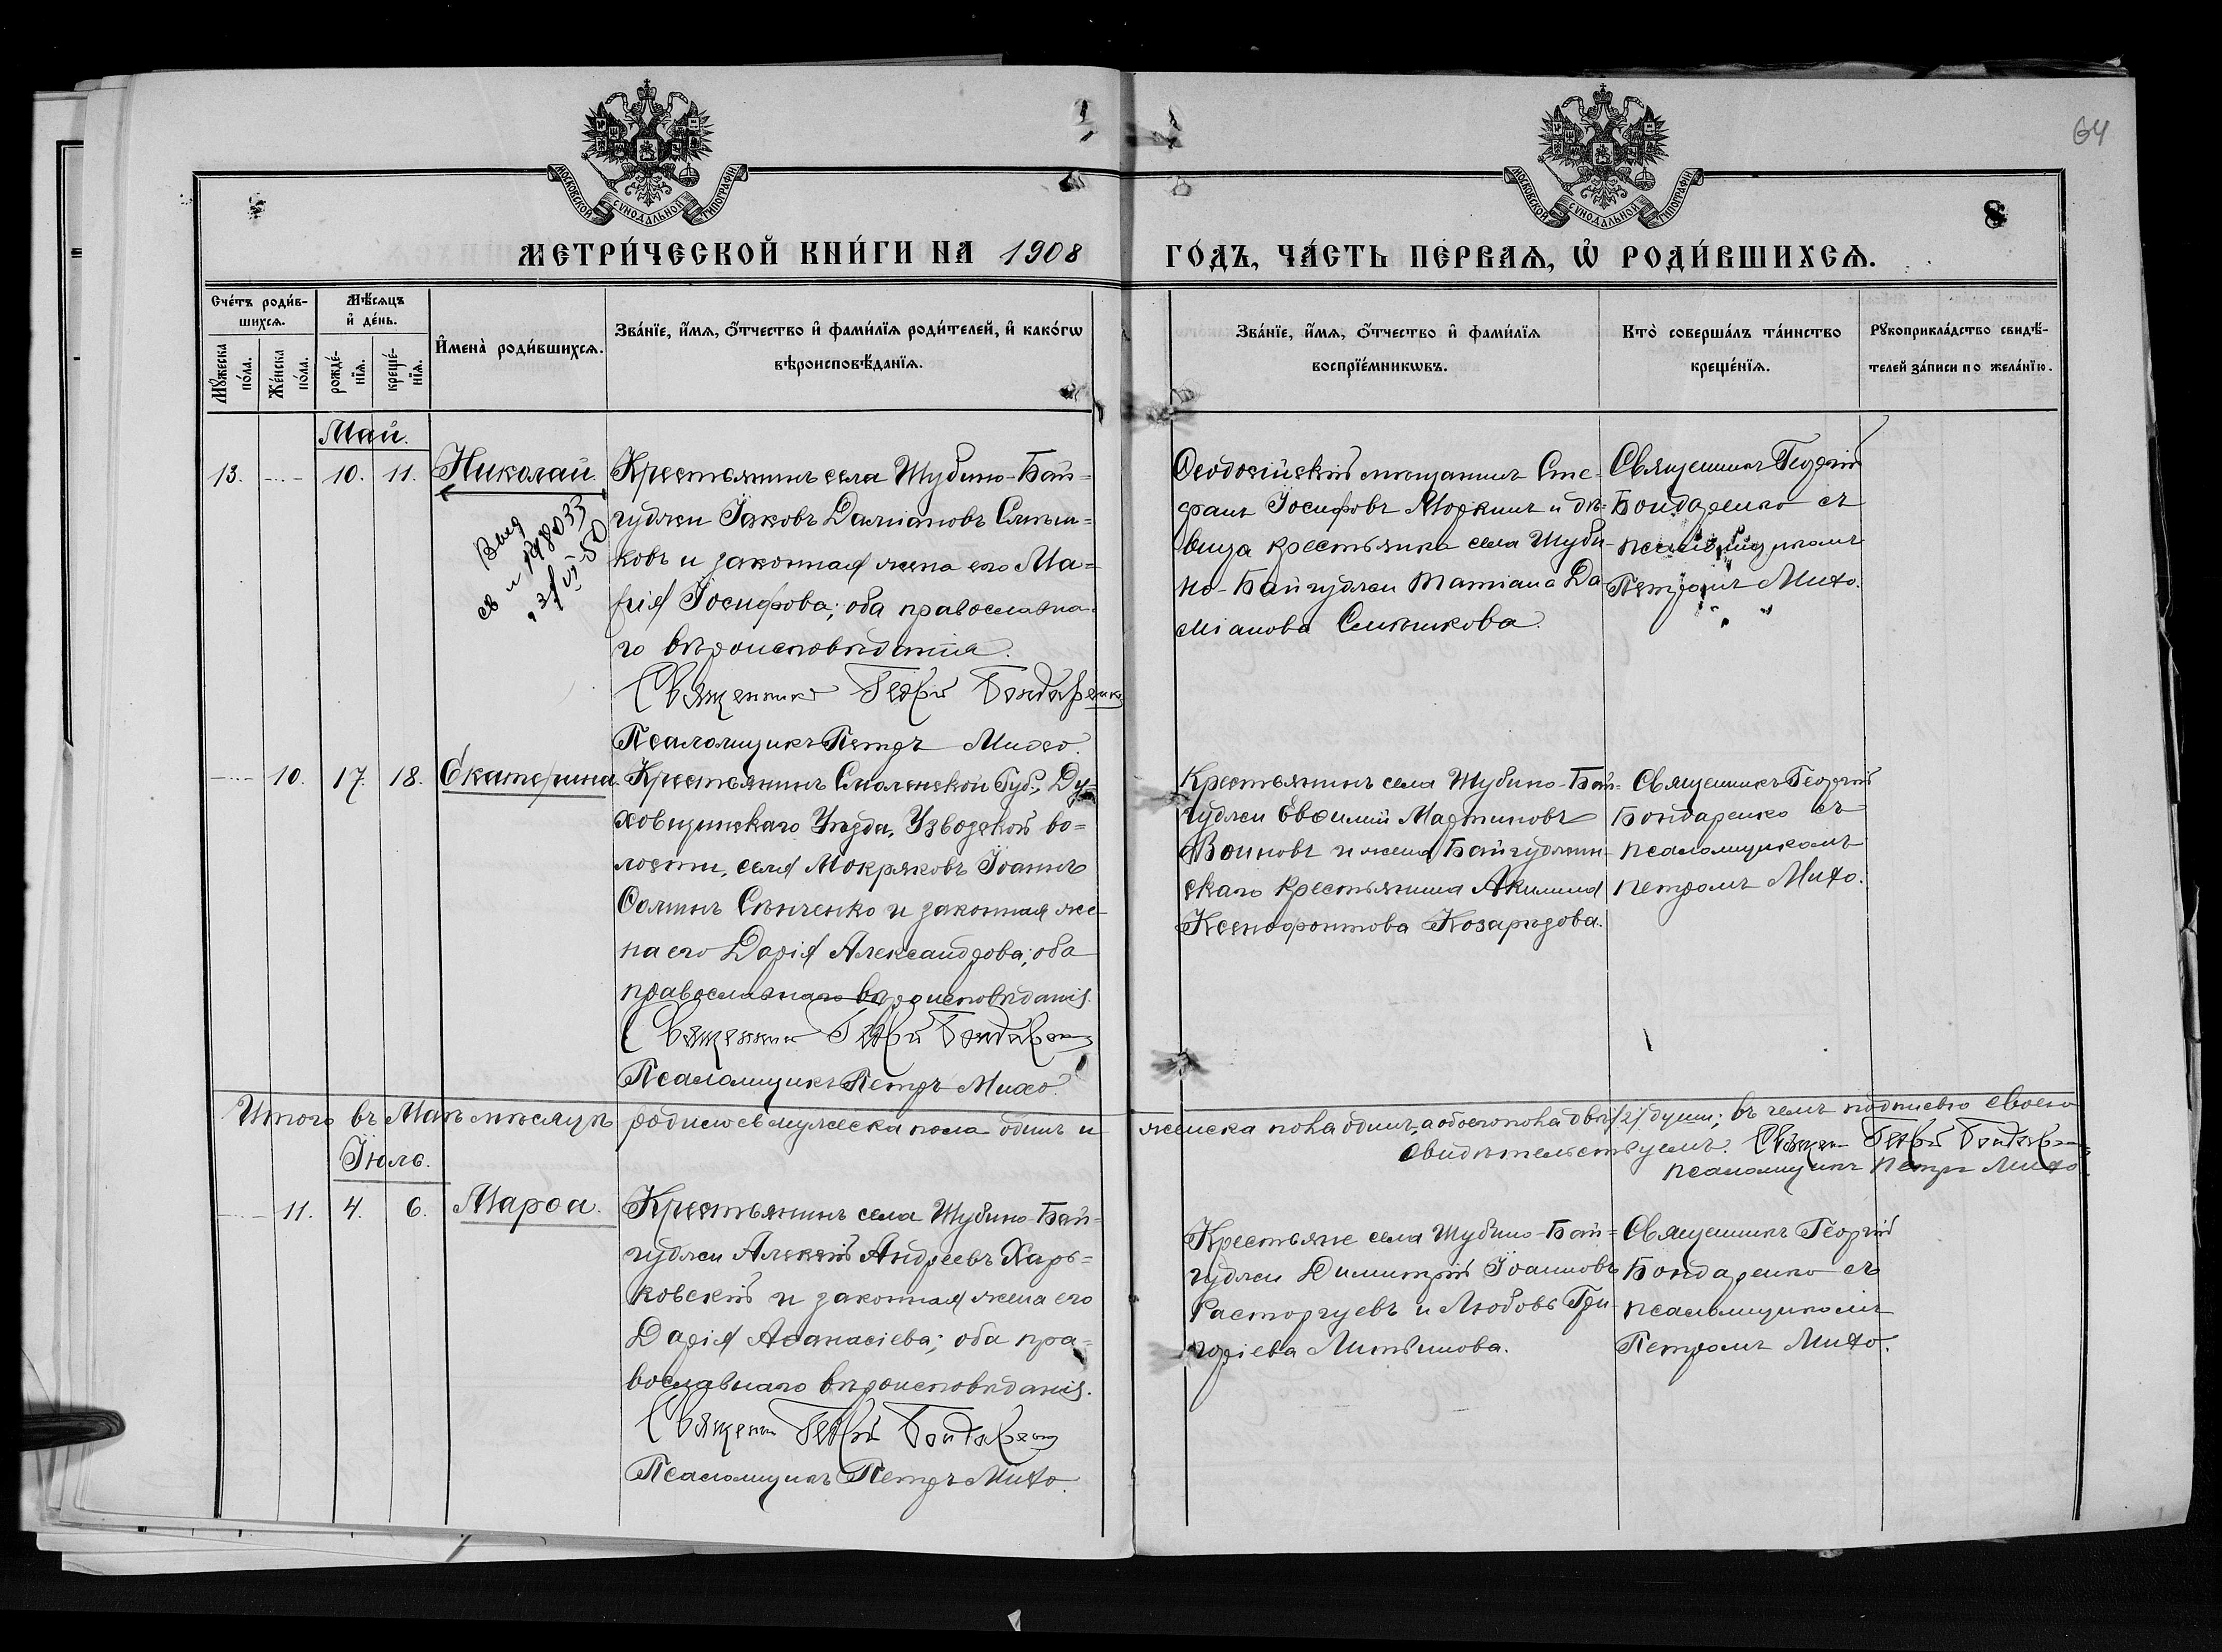 64
МОСКОВСКОЙ СѴНОДАЛЬНОЙ ТИПОГРАФІИ
МОСКОВСКОЙ СѴНОДАЛЬНОЙ ТИПОГРАФІИ
8
МЕТРИ́ЧЕСКОЙ КНИ́ГИ НА 1908
ГО́ДЪ, ЧА́СТЬ ПЕ́РВАѦ, Ѡ РОДИ́ВШИХСѦ.
Сче́тъ роди́в-
шихсѧ.
Мѣ́сѧцъ
и де́нь.
Мꙋ́жеска
по́ла.
Же́нска
по́ла.
рожде́-
нїѧ.
креще́-
нїѧ.
Имена̀ роди́вшихсѧ.
Зва́нїе, и́мѧ, ѻ́тчество и фами́лїѧ роди́телей, и како́гѡ
вѣроисповѣ́данїѧ.
Зва́нїе, и́мѧ, ѻ́тчество и фами́лїѧ
воспрїе́мникѡвъ.
Кто̀ соверша́лъ та́инство
креще́нїѧ.
Рꙋкоприкла́дство свидѣ́-
телей за́писи по жела́нїю.
Май.
13. 10. 11. Николай.
Крестьянинъ села Шубино-Бай=
гуджи Іаковъ Даміановъ Слѣпи=
ковъ и законная жена его Ма=
рія Іосифова; оба православна-
го вѣроисповѣданія.
Священникъ Георгій Бондаренко
Псаломщикъ Петръ Михо.
Ѳеодосійскій мѣщанинъ Сте-
фанъ Іосифовъ Моркинъ и дѣ=
вица крестьянка села Шуби-
но-Байгуджи Татіана Да-
міанова Слѣпикова.
Священникъ Георгій
Бондаренко съ
псаломщикомъ
Петромъ Михо.
10. 17. 18. Екатерина.
Крестьянинъ Смоленской Губ., Ду-
ховщинскаго Уѣзда, Узводской во=
лости, села Мокряковъ Іоаннъ
Ѳоминъ Сѣнченко и законная же-
на его Дарія Александрова; оба
православнаго вѣроисповѣданія.
Священникъ Георгій Бондаренко
Псаломщикъ Петръ Михо.
Крестьянинъ села Шубино-Бай-
гуджи Евѳимій Мартиновъ
Воиновъ и жена Байгуджин-
скаго крестьянина Акилина
Ксенофонтова Козарѣзова.
Священникъ Георгій
Бондаренко съ
псаломщикомъ
Петромъ Михо.
Итого въ Маѣ мѣсяцѣ родилось мужеска пола одинъ и женска пола одинъ, а обоего пола двѣ /2/ души; въ чемъ подписью своею
свидѣтельствуемъ. Священ. Георгій Бондаренко
псаломщикъ Петръ Михо.
Іюль.
11. 4. 6. Марѳа.
Крестьянинъ села Шубино-Бай=
гуджи Алексѣй Андреевъ Харь=
ковскій и законная жена его
Дарія Аѳанасіева; оба пра=
вославнаго вѣроисповѣданія.
Священ. Георгій Бондаренко
Псаломщикъ Петръ Михо.
Крестьяне села Шубино-Бай=
гуджи Димитрій Іоанновъ
Расторгуевъ и Любовь Гри-
горіева Литвинова.
Священникъ Георгій
Бондаренко съ
псаломщикомъ
Петромъ Михо.